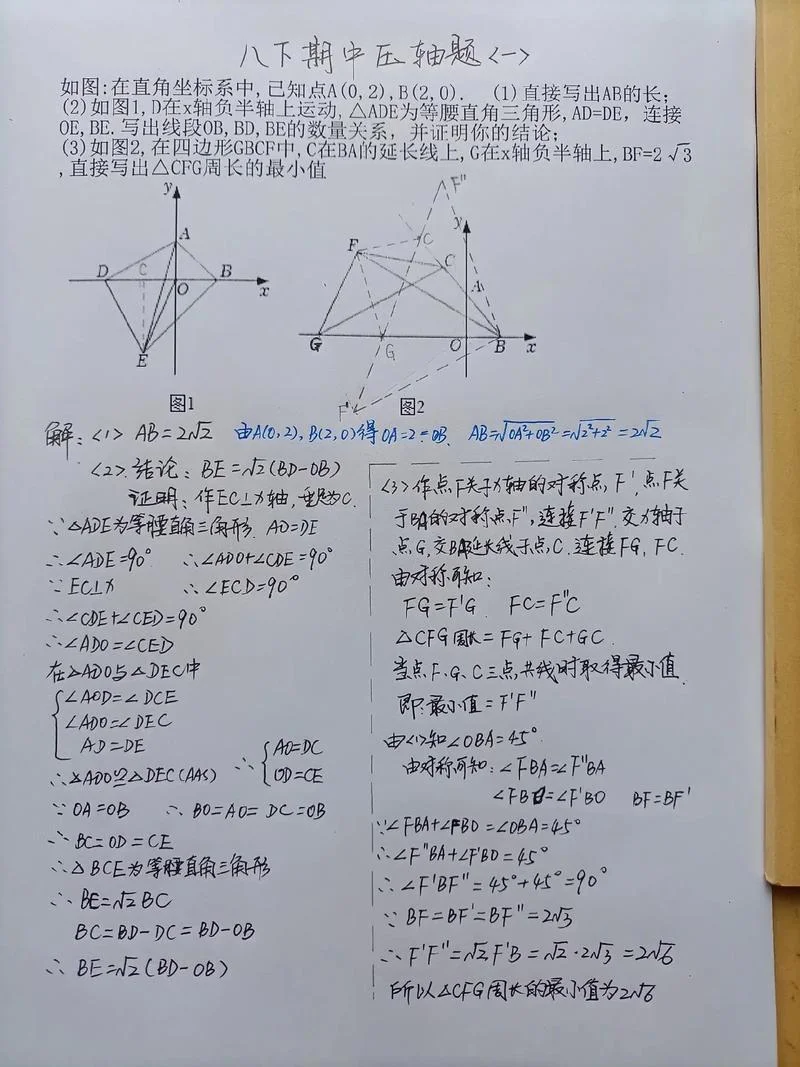 八下期中压轴题<一>
如图:在直角坐标系中,己知点A(0,2),B(2,0). (1)直接写出AB的长;
(2)如图1,D在x轴负半轴上运动,△ADE为等腰直角三角形,AD=DE,连接
OE,BE.写出线段OB,BD,BE的数量关系,并证明你的结论;
(3)如图2,在四边形GBCF中,C在BA的延长线上,G在x轴负半轴上,BF=2√3
,直接写出△CFG周长的最小值
y
A
D
C
B
O
x
E
图1
F''
y
F
C
C
A
G
G
O
B
x
F'
图2
解:<1> AB=2√2 由A(0,2),B(2,0)得OA=2=OB. AB=√OA²+OB²=√2²+2²=2√2
<2>.结论: BE=√2(BD-OB)
证明:作EC⊥x轴,垂足为C.
∵△ADE为等腰直角三角形. AD=DE
∴∠ADE=90° ∴∠ADO+∠CDE=90°
∵EC⊥x ∴∠ECD=90°
∴∠CDE+∠CED=90°
∴∠ADO=∠CED
在△ADO与△DEC中
∠AOD=∠DCE
∠ADO=∠DEC
AD=DE
∴△ADO≌△DEC(AAS) ∴ AO=DC
OD=CE
∵OA=OB ∴BO=AO=DC=OB
∴BC=OD=CE
∴△BCE为等腰直角三角形
∴BE=√2BC
BC=BD-DC=BD-OB
∴BE=√2(BD-OB)
<3>作点F关于x轴的对称点,F',点F关
于BA的对称点F'',连接F'F''.交x轴于
点G,交BA延长线于点C.连接FG,FC.
由对称可知:
FG=F'G FC=F''C
△CFG周长=FG+FC+GC.
当点F、G、C三点,共线时取得最小值.
即:最小值=F'F''
由<1>知∠OBA=45°.
由对称可知:∠FBA=∠F''BA
∠FBO=∠F'BO BF=BF'
∵∠FBA+∠FBO=∠OBA=45°
∴∠F''BA+∠F'BO=45°
∴∠F'BF''=45°+45°=90°
∵BF=BF'=BF''=2√3
∴F'F''=√2F'B=√2·2√3=2√6
所以△CFG周长的最小值为2√6